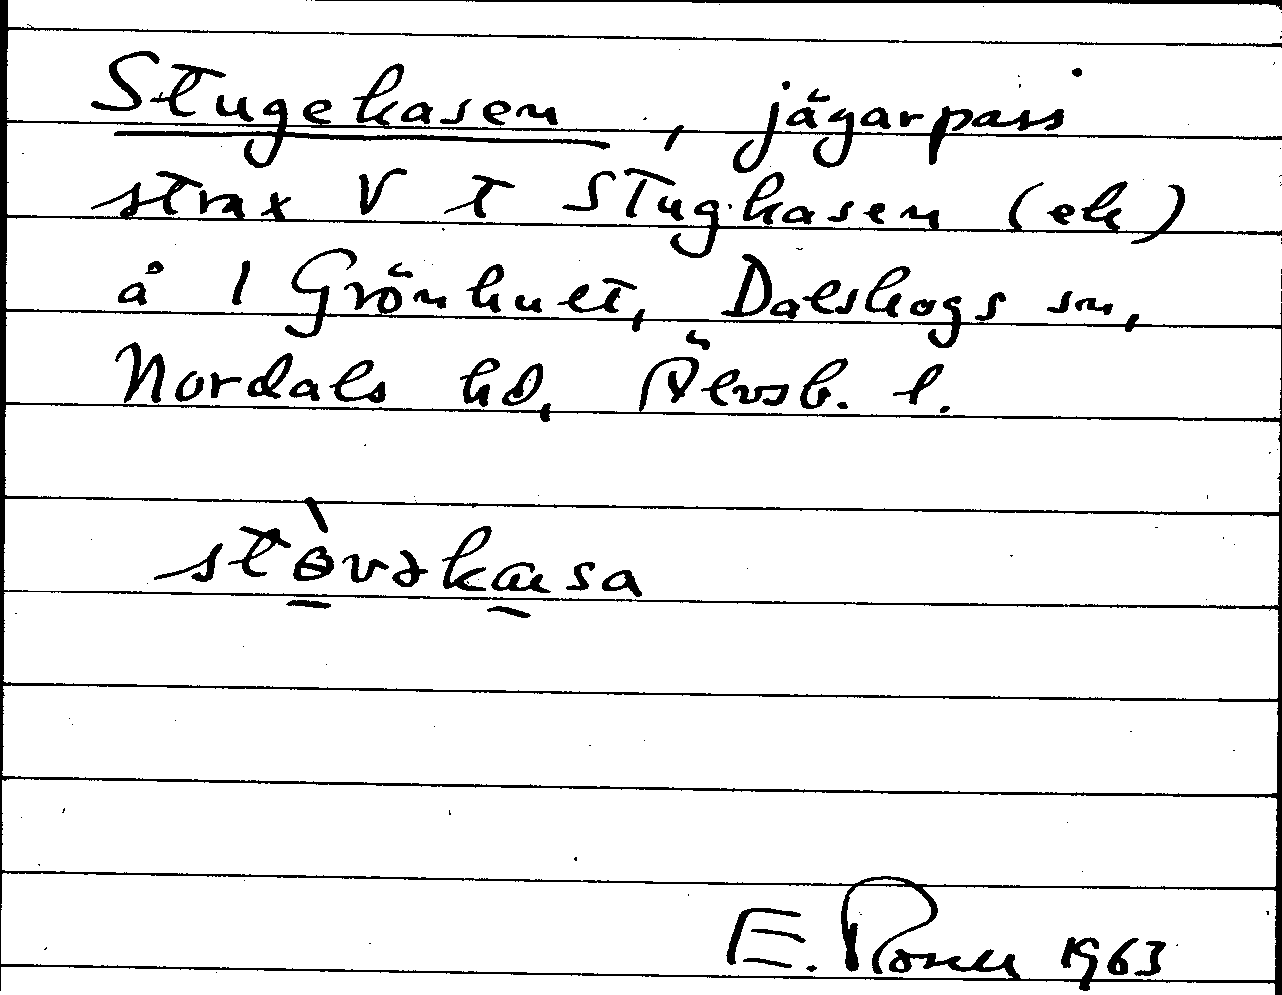 Stugekasen, jägarpass
strax V t Stugkasen (ek)
å 1 Grönhult, Dalskogs sn,
Nordals hd, Älvsb. l.
stòvəkasa
E. Rosell 1963